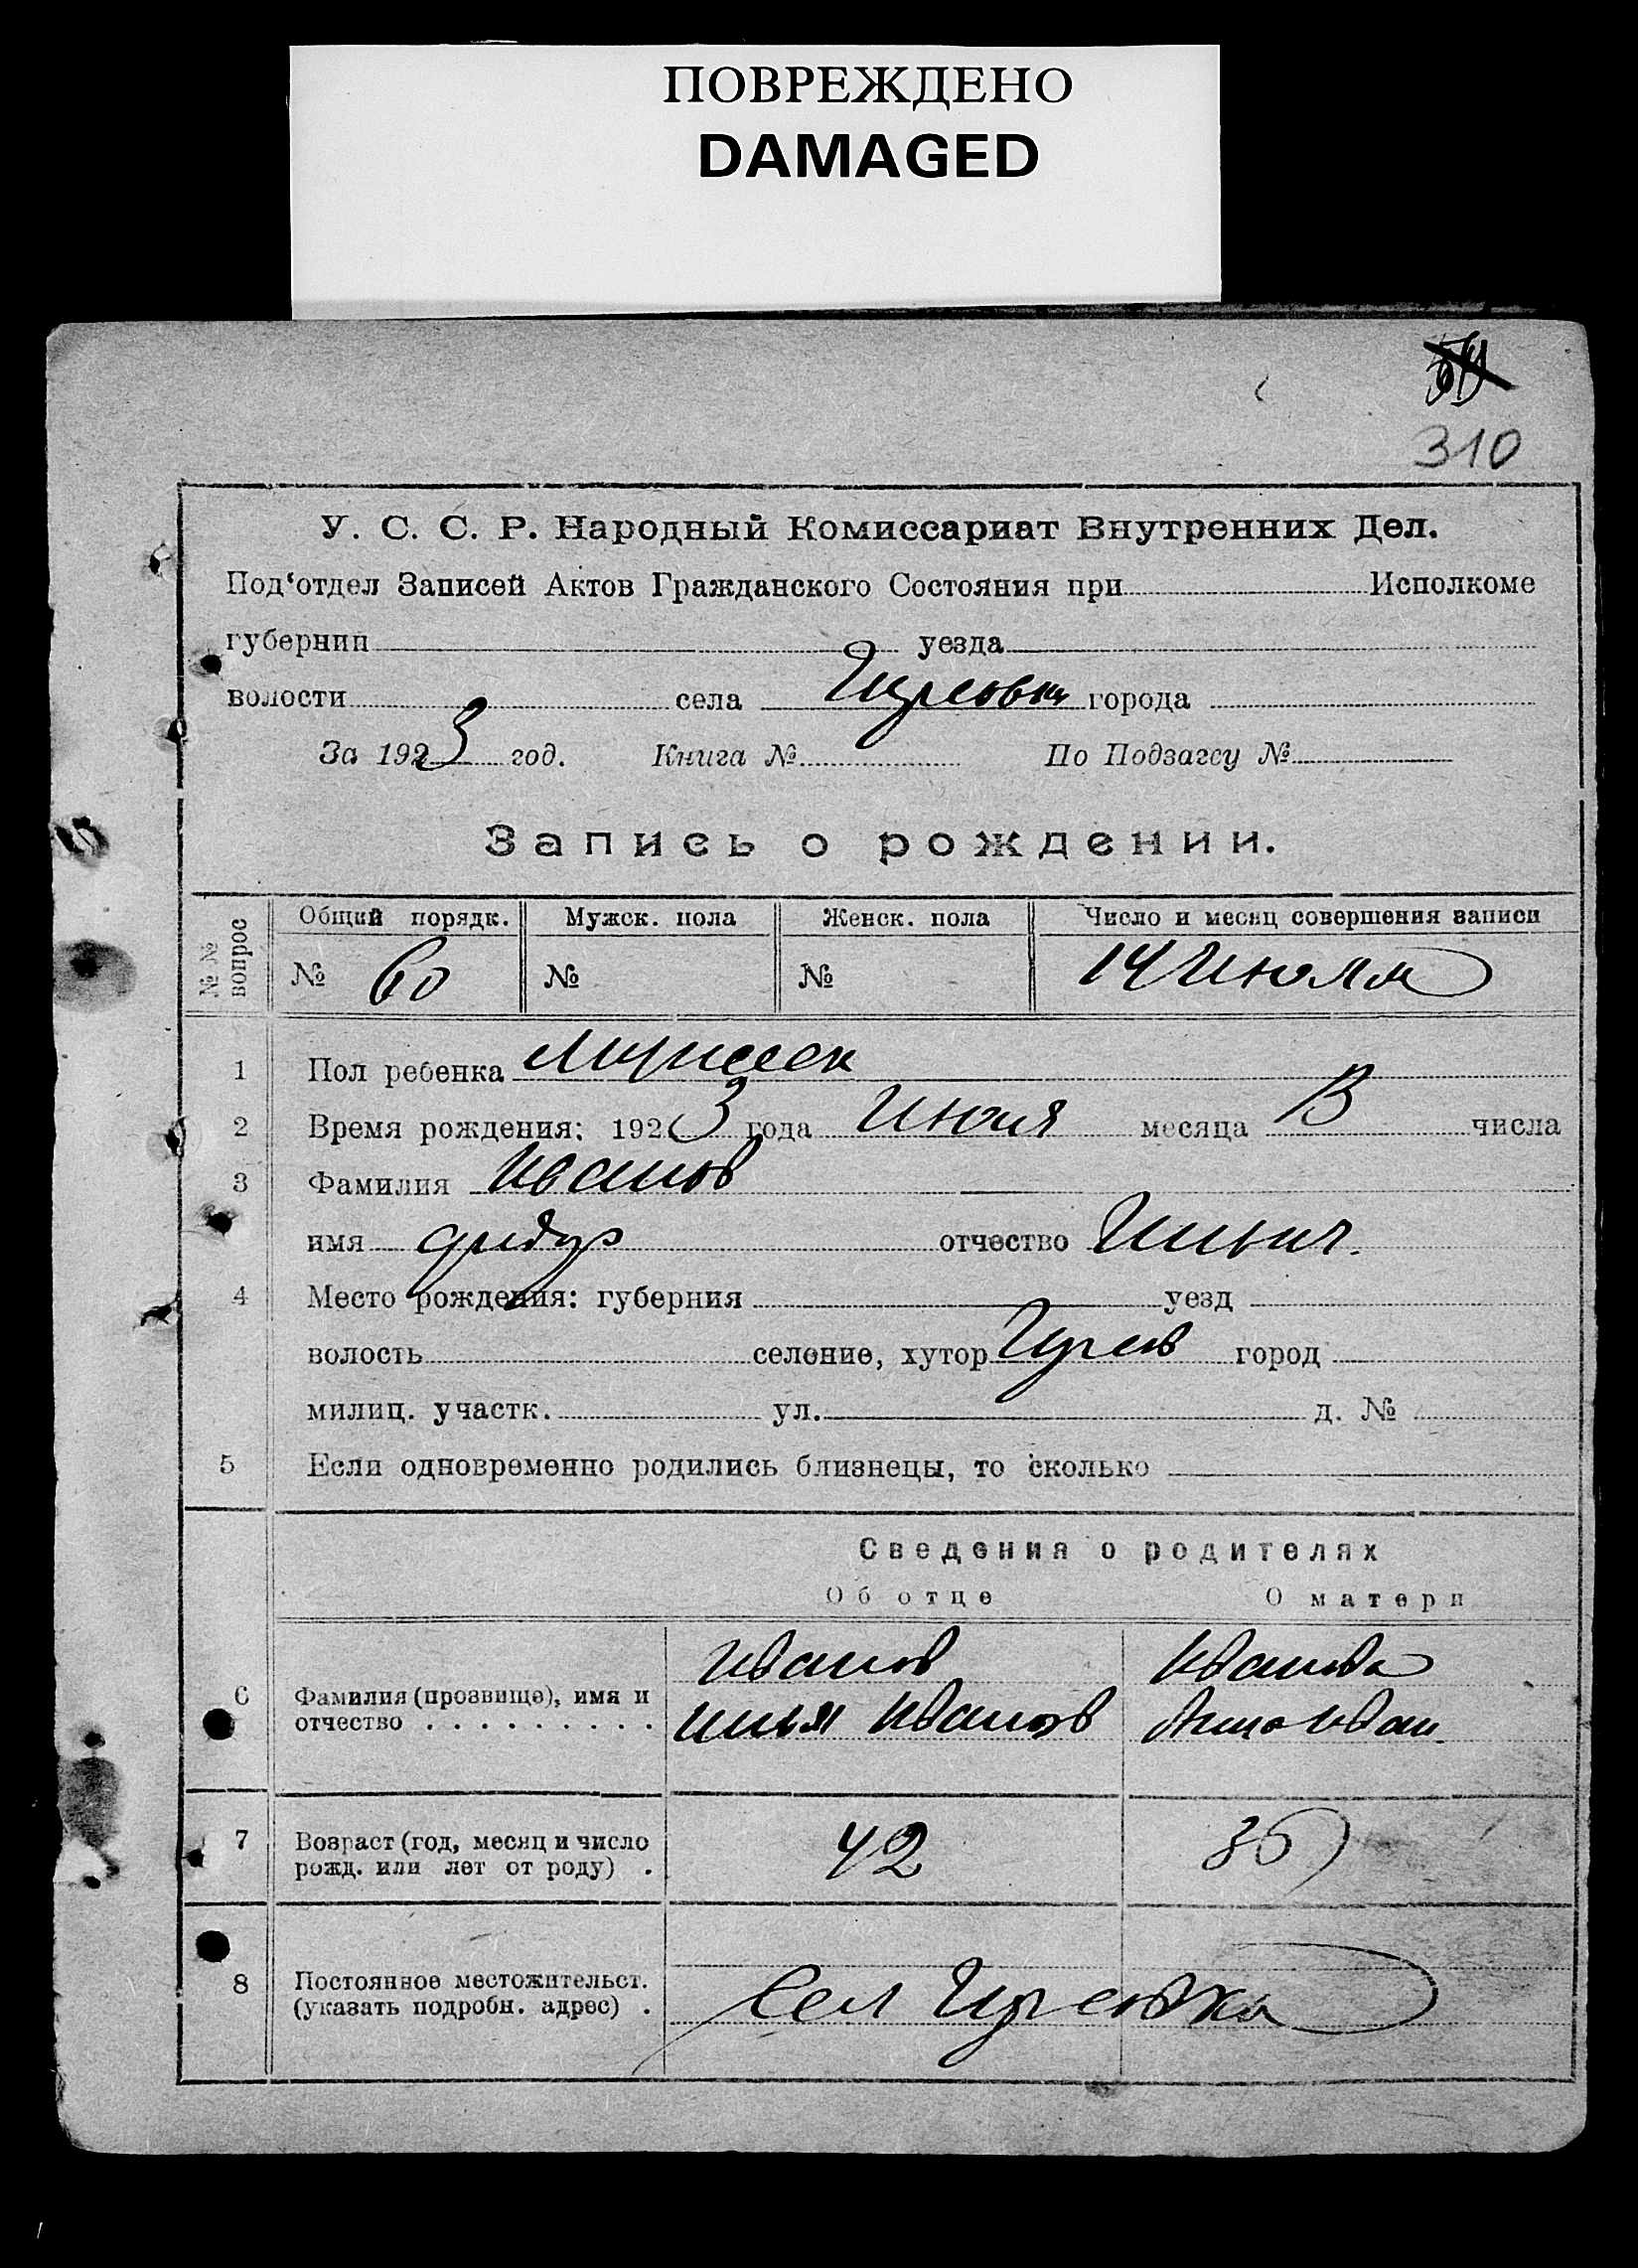 ПОВРЕЖДЕНО
DAMAGED
310
У. С. С. Р. Народный Комиссариат Внутренних Дел.
Под‘отдел Записей Актов Гражданского Состояния при Исполкоме
губернии уезда
волости села города
За 1923 год. Книга № По Подзагсу №
Запись о рождении.
№ № вопрос
Общий порядк. Мужск. пола Женск. пола Число и месяц совершения записи
№ 60 № № 14 Июля
1 Пол ребенка
2 Время рождения: 1923 года месяца числа
3 Фамилия Иванов
имя отчество Ильич.
4 Место рождения: губерния уезд
волость селение, хутор город
милиц. участк. ул. д. №
5 Если одновременно родились близнецы, то сколько
Сведения о родителях
Об отце О матери
Иванов Иванова
6 Фамилия (прозвище), имя и
отчество Илья Иванов Анна Иван.
7 Возраст (год, месяц и число
рожд. или лет от роду) . 42 35
8 Постоянное местожительст.
(указать подробн. адрес) . Сел